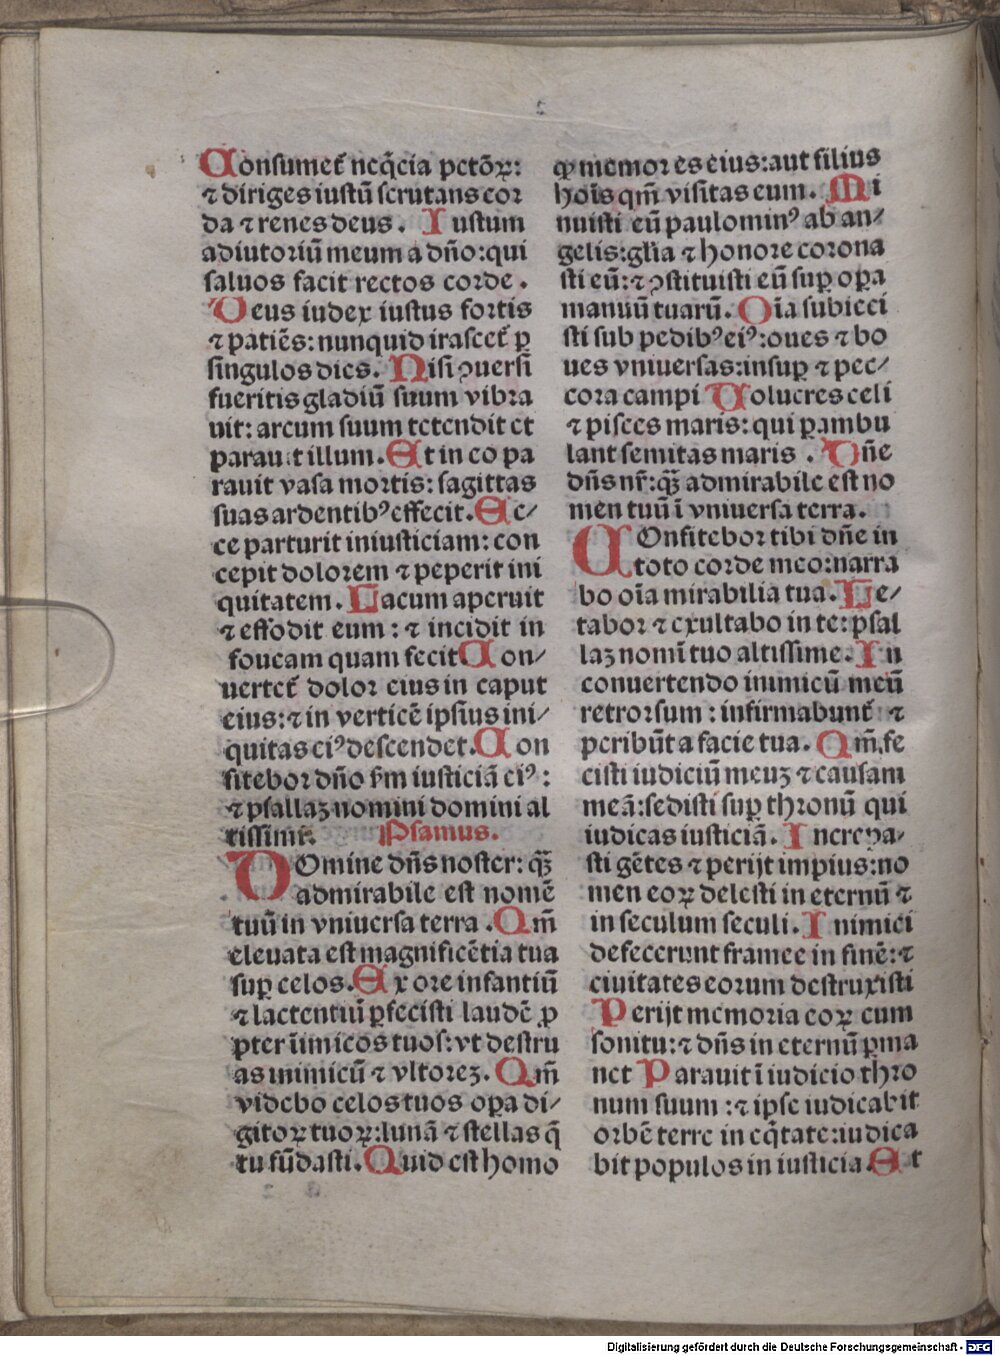 2
Consumet᷑ neq̃cia pctõꝝ:
⁊ diriges iustũ scrutans cor
da ⁊ renes deus. Iustum
adiutoriũ meum a dño: qui
saluos facit rectos corde.
Deus iudex iustus fortis
⁊ patiẽs: nunquid irascet᷑ ꝑ
singulos dies. Nisi ꝯuersi
fueritis gladiũ suum vibra
uit: arcum suum tetendit et
parauit illum. Et in eo pa
rauit vasa mortis: sagittas
suas ardentibꝰ effecit. Ec⸗
ce parturit iniusticiam: con
cepit dolorem ⁊ peperit ini
quitatem. Lacum aperuit
⁊ effodit eum: ⁊ incidit in
foueam quam fecit Con⸗
uertet᷑ dolor eius in caput
eius: ⁊ in verticẽ ipsius ini⸗
quitas eiꝰ descendet. Con
fitebor dño ẜm iusticiã eiꝰ:
⁊ psallaʒ nomini domini al
tissimi. Psamus.
DOmine dñs noster: qȝ̃
admirabile est nomẽ
tuũ in vniuersa terra. Qm̃
eleuata est magnificẽtia tua
suꝑ celos. Ex ore infantiũ
⁊ lactentiũ ꝑfecisti laudẽ ꝓ
pter ĩimicos tuos: vt destru
as inimicũ ⁊ vltoreʒ. Qm̃
videbo celos tuos oꝑa di⸗
gitoꝝ tuoꝝ: lunã ⁊ stellas q̃
tu fũdasti. Quid est homo
ꝙ memor es eius: aut filius
hoĩs qm̃ visitas eum. Mi
nuisti eũ paulominꝰ ab an⸗
gelis: gl̃ia ⁊ honore corona
sti eũ: ⁊ ꝯstituisti eũ suꝑ oꝑa
manuũ tuarũ. Oĩa subieci
sti sub pedibꝰ eiꝰ: oues ⁊ bo
ues vniuersas: insuꝑ ⁊ pec⸗
cora campi Volucres celi
⁊ pisces maris: qui ꝑambu
lant semitas maris. Dñe
dñs nr̃: qȝ̃ admirabile est no
men tuũ ĩ vniuersa terra.
COnfitebor tibi dñe in
toto corde meo: narra
bo oĩa mirabilia tua. Le⸗
tabor ⁊ exultabo in te: psal
laʒ nomĩ tuo altissime. In
conuertendo inimicũ meũ
retrorsum: infirmabunt᷑ ⁊
peribũt a facie tua. Qm̃ fe
cisti iudiciũ meuʒ ⁊ causam
meã: sedisti suꝑ thronũ qui
iudicas iusticiã. Increpa⸗
sti gẽtes ⁊ perijt impius: no
men eoꝝ delesti in eternũ ⁊
in seculum seculi. Inimici
defecerunt framee in finẽ: ⁊
ciuitates eorum destruxisti
Perijt memoria eoꝝ cum
sonitu: ⁊ dñs in eternũ ꝑma
net Parauit ĩ iudicio thro
num suum: ⁊ ipse iudicabit
orbẽ terre in eq̃tate: iudica
bit populos in iusticia. Et
Digitalisierung gefördert durch die Deutsche Forschungsgemeinschaft - DFG